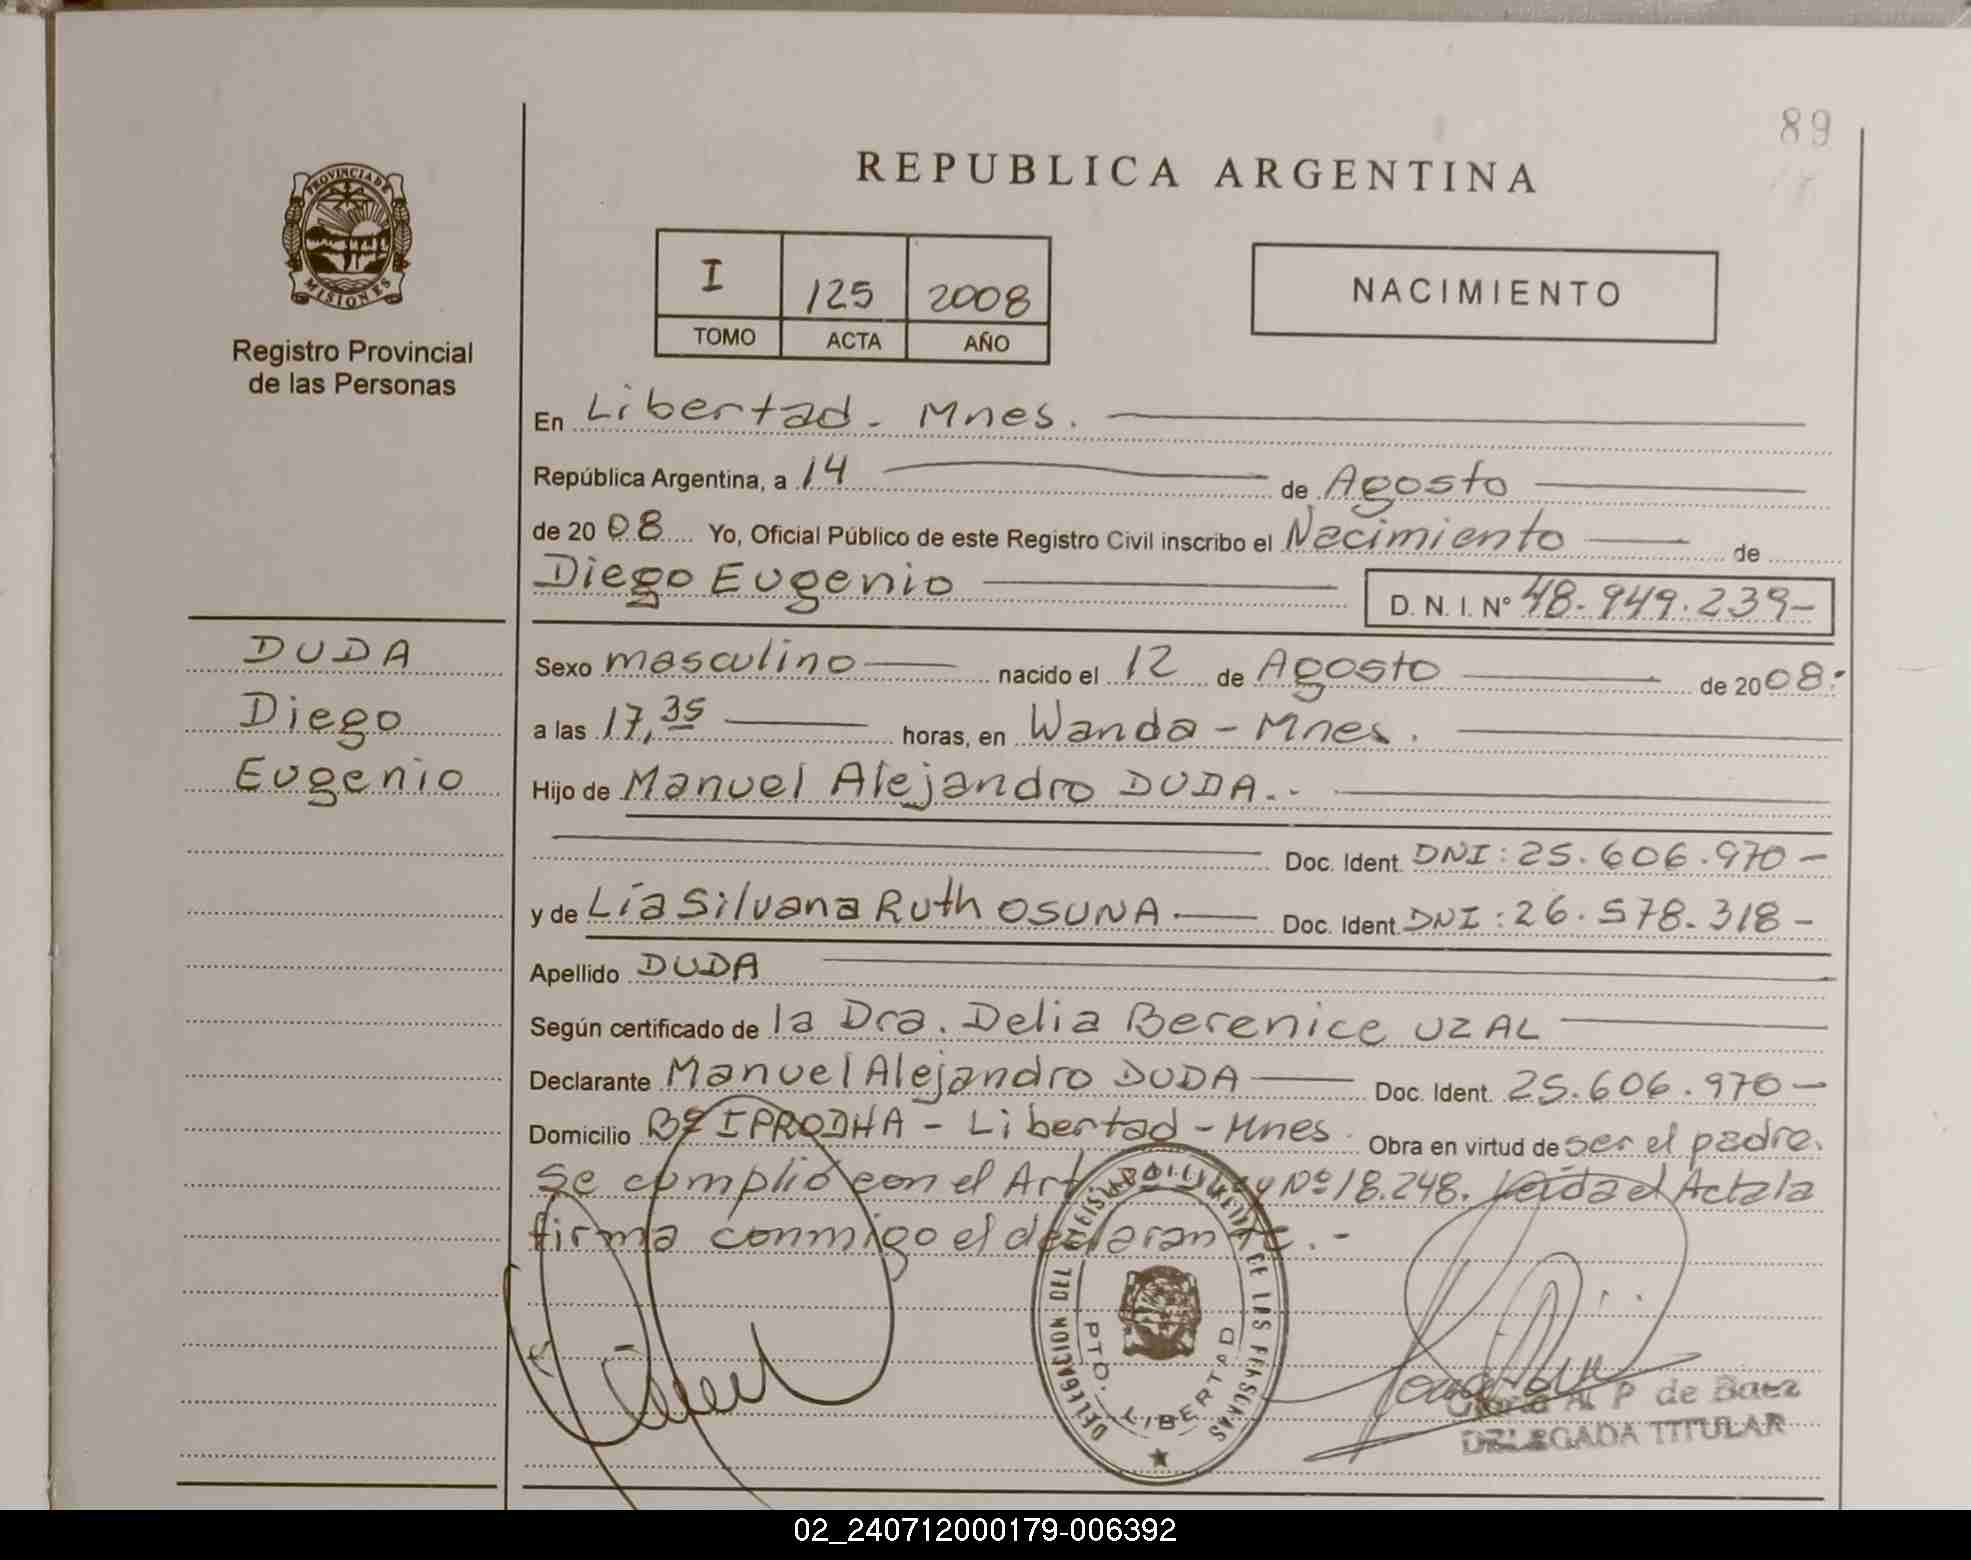 89
REPUBLICA ARGENTINA
PROVINCIA DE
MISIONES
Registro Provincial
de las Personas
I 125 2008
TOMO ACTA AÑO
NACIMIENTO
En Libertad - Mnes.
República Argentina, a 14 de Agosto
de 20 08 Yo, Oficial Público de este Registro Civil inscribo el Nacimiento de
Diego Eugenio D. N. I. Nº 48.949.239-
DUDA
Diego
Eugenio
Sexo masculino nacido el 12 de Agosto de 2008.
a las 17,35 horas, en Wanda - Mnes.
Hijo de Manuel Alejandro DUDA.-
Doc. Ident. DNI: 25.606.970-
y de Lía Silvana Ruth OSUNA.- Doc. Ident. DNI: 26.578.318-
Apellido DUDA
Según certificado de la Dra. Delia Berenice UZAL
Declarante Manuel Alejandro DUDA Doc. Ident. 25.606.970-
Domicilio Bº IPRODHA - Libertad - Mnes. Obra en virtud de ser el padre.
Se cumplió con el Art Ley Nº 18.248. Leída el Acta la
firma conmigo el declarante.-
DELEGACION DEL REGISTRO DE LAS PERSONAS
PTO. LIBERTAD
Gloria A. P de Baez
DELEGADA TITULAR
02_240712000179-006392